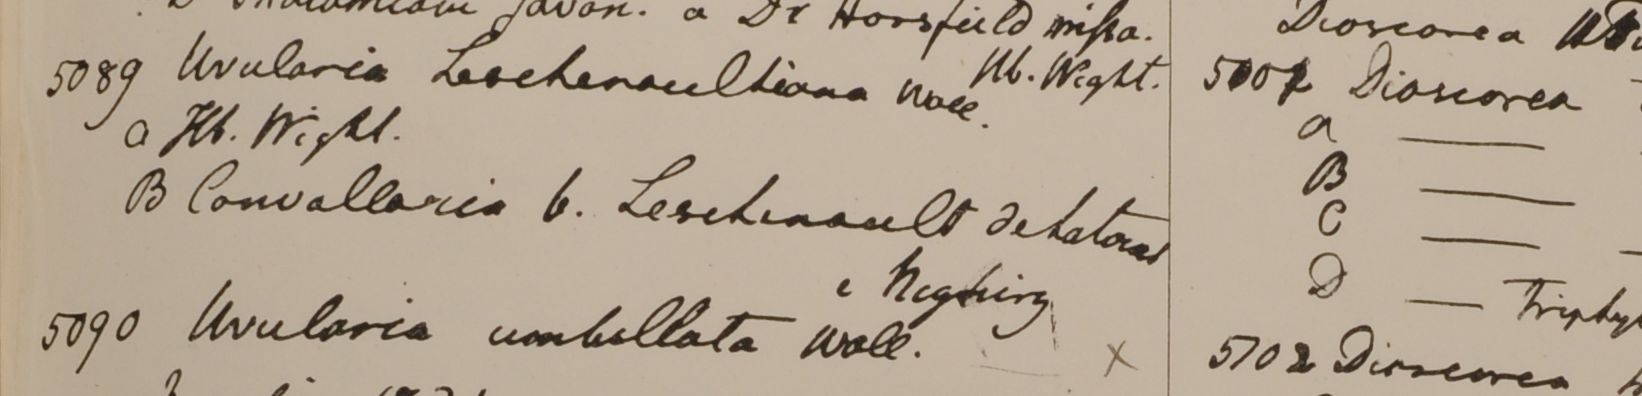 Javan. a Dr Horsfield missa.
5089 Uvularia Leschenaultiana Wall. Hb. Wight.
a Hb. Wight.
B Convallaria 6. Leschenault
e
5090 Uvularia umbellata Wall.
X
Dioscorea
Dioscorea
a
B
C
D
5102 Dioscorea